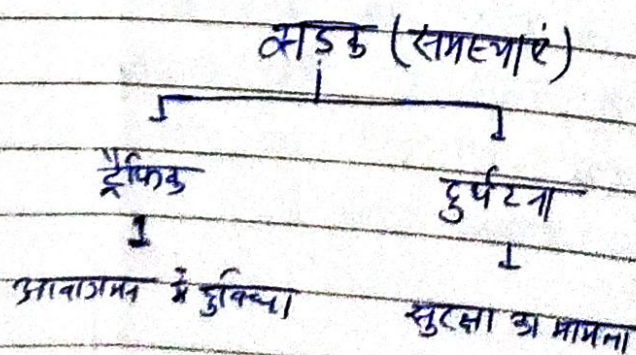 सड़क (समस्याएं)
ट्रैफिक दुर्घटना
आवागमन में दुविधा सुरक्षा का मामला